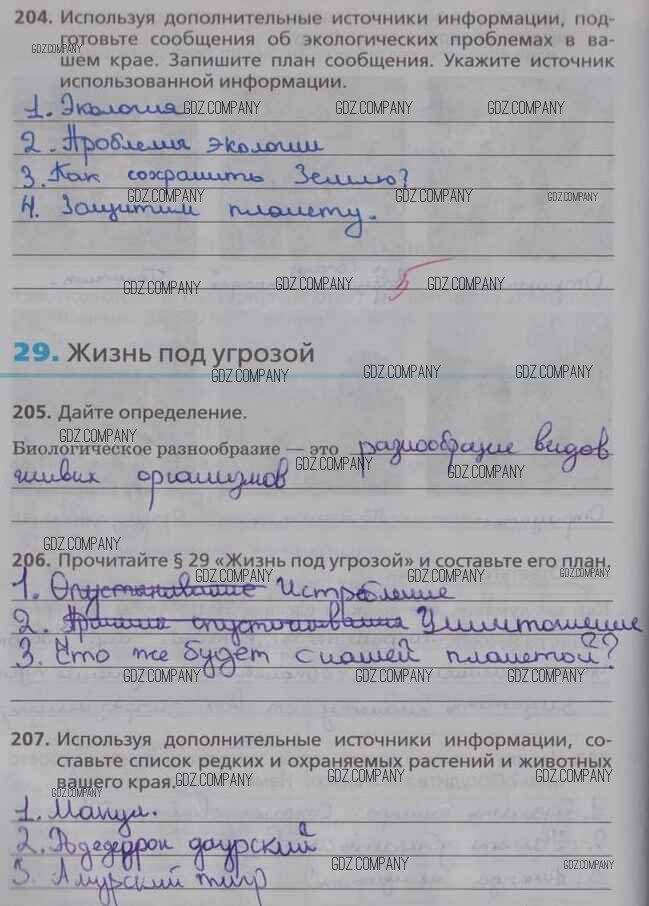 204. Используя дополнительные источники информации, под-
готовьте сообщения об экологических проблемах в ва-
GDZ.COMPANY
шем крае. Запишите план сообщения. Укажите источник
использованной информации.
1. Экология GDZ.COMPANY GDZ.COMPANY GDZ.COMPANY
2. Проблемы экологии
3. Как сохранить Землю?
GDZ.COMPANY GDZ.COMPANY GDZ.COMPANY
4. Защитим планету.
5
GDZ.COMPANY GDZ.COMPANY GDZ.COMPANY
29. Жизнь под угрозой
GDZ.COMPANY GDZ.COMPANY GDZ.COMPANY
205. Дайте определение.
GDZ.COMPANY
Биологическое разнообразие — это разнообразие видов
GDZ.COMPANY GDZ.COMPANY
живых организмов
GDZ.COMPANY
206. Прочитайте § 29 «Жизнь под угрозой» и составьте его план.
GDZ.COMPANY GDZ.COMPANY GDZ.COMPANY
1. Опустынивание Истребление
2. опустынивания Уничтожение
3. Что же будет с нашей планетой?
GDZ.COMPANY GDZ.COMPANY GDZ.COMPANY
207. Используя дополнительные источники информации, со-
ставьте список редких и охраняемых растений и животных
вашего края. GDZ.COMPANY GDZ.COMPANY GDZ.COMPANY
GDZ.COMPANY
1. Манул.
2. даурский
GDZ.COMPANY GDZ.COMPANY
3. Амурский тигр